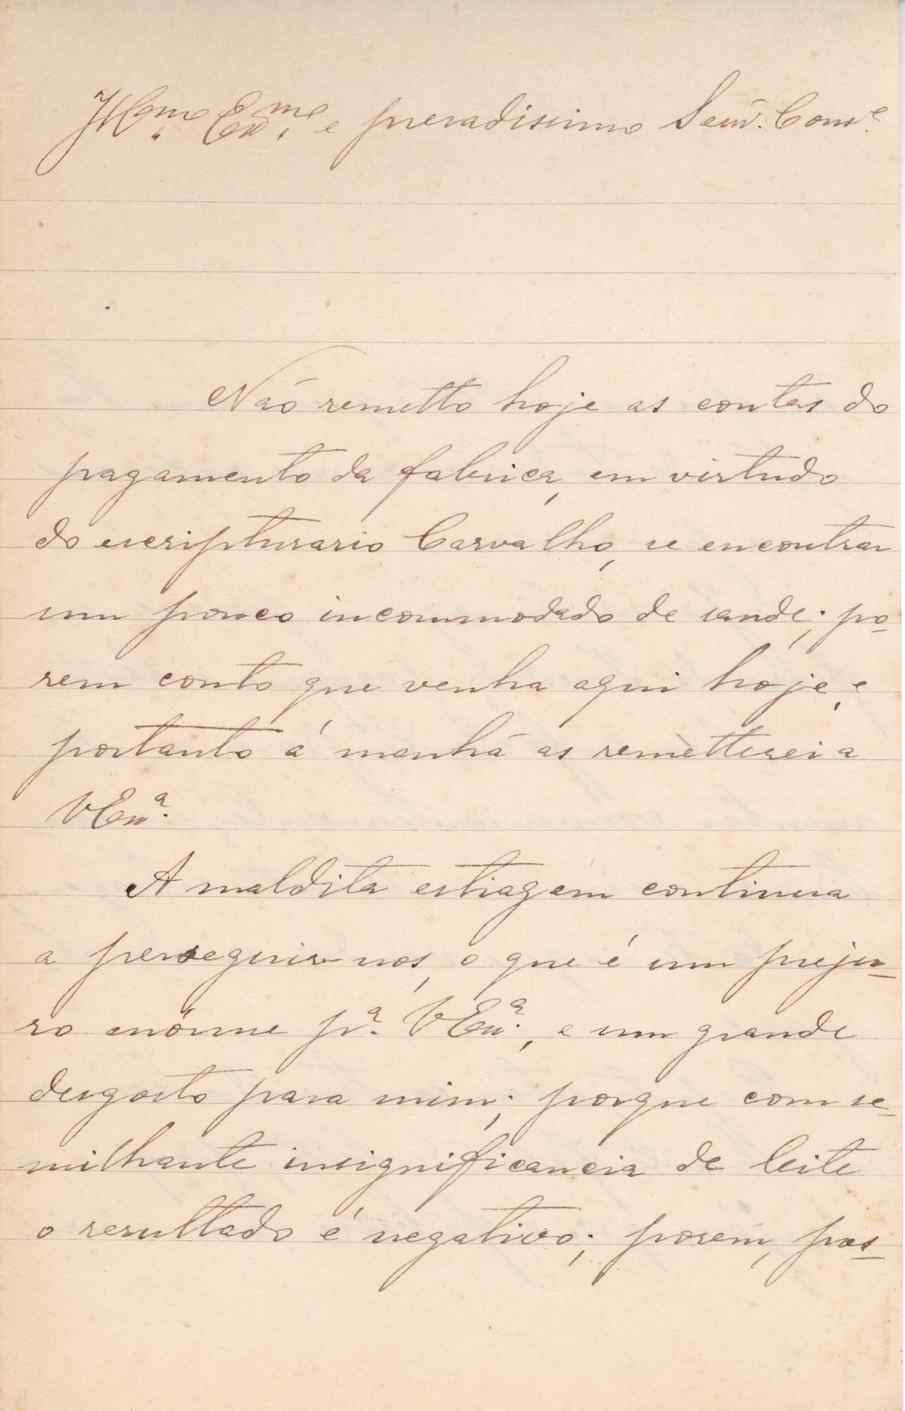 Illmo. Exmo. e presadissimo Senr. Come.
Não remetto hoje as contas do
pagamento da fabrica, em virtude
do escripturario Carvalho, se encontrar
um pouco incommodado de saude; po-
rem conto que venha aqui hoje, e
portanto á manhã as remetterei a
V Exa.
A maldita estiagem continua
a perseguir-nos, o que é um preju-
zo enórme pa. V Exa., e um grande
desgosto para mim; porque com se-
milhante insignificancia de leite
o resultado é negativo; porem, pos-